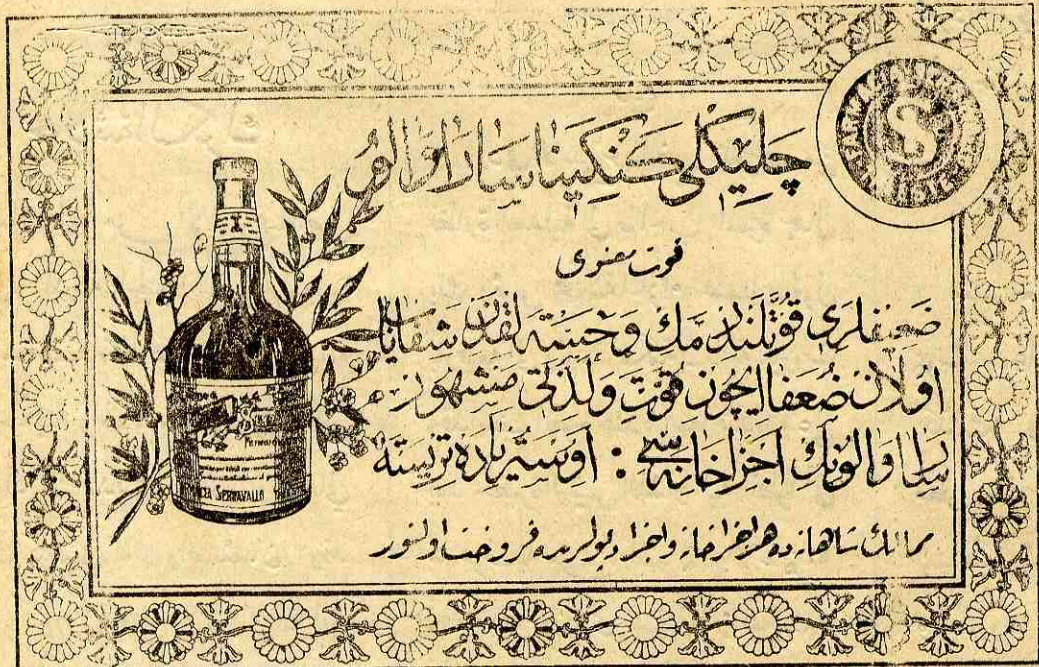 چليكلی كنكينا ساراوالو
قوت معنوی
ضعيفلری قوتلندرمك وخسته لقدن شفاياب
اولان ضعفا ايچون قوت ولذتی مشهور
ساراوالونك اجزاخانه سی : اوستريا ده تريسته
ممالك شاهانه ده هر اجزاخانه واجزا ديپولرنده فروخت اولنور
S
SERRAVALLO